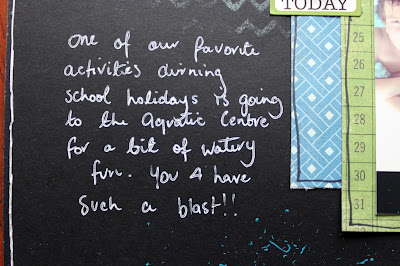 TODAY
One of our favorite
activities durning
school holidays is going
to the Aquatic Centre
for a bit of watery
fun. You 4 have
such a blast!!
25
26
27
28
29
30
31